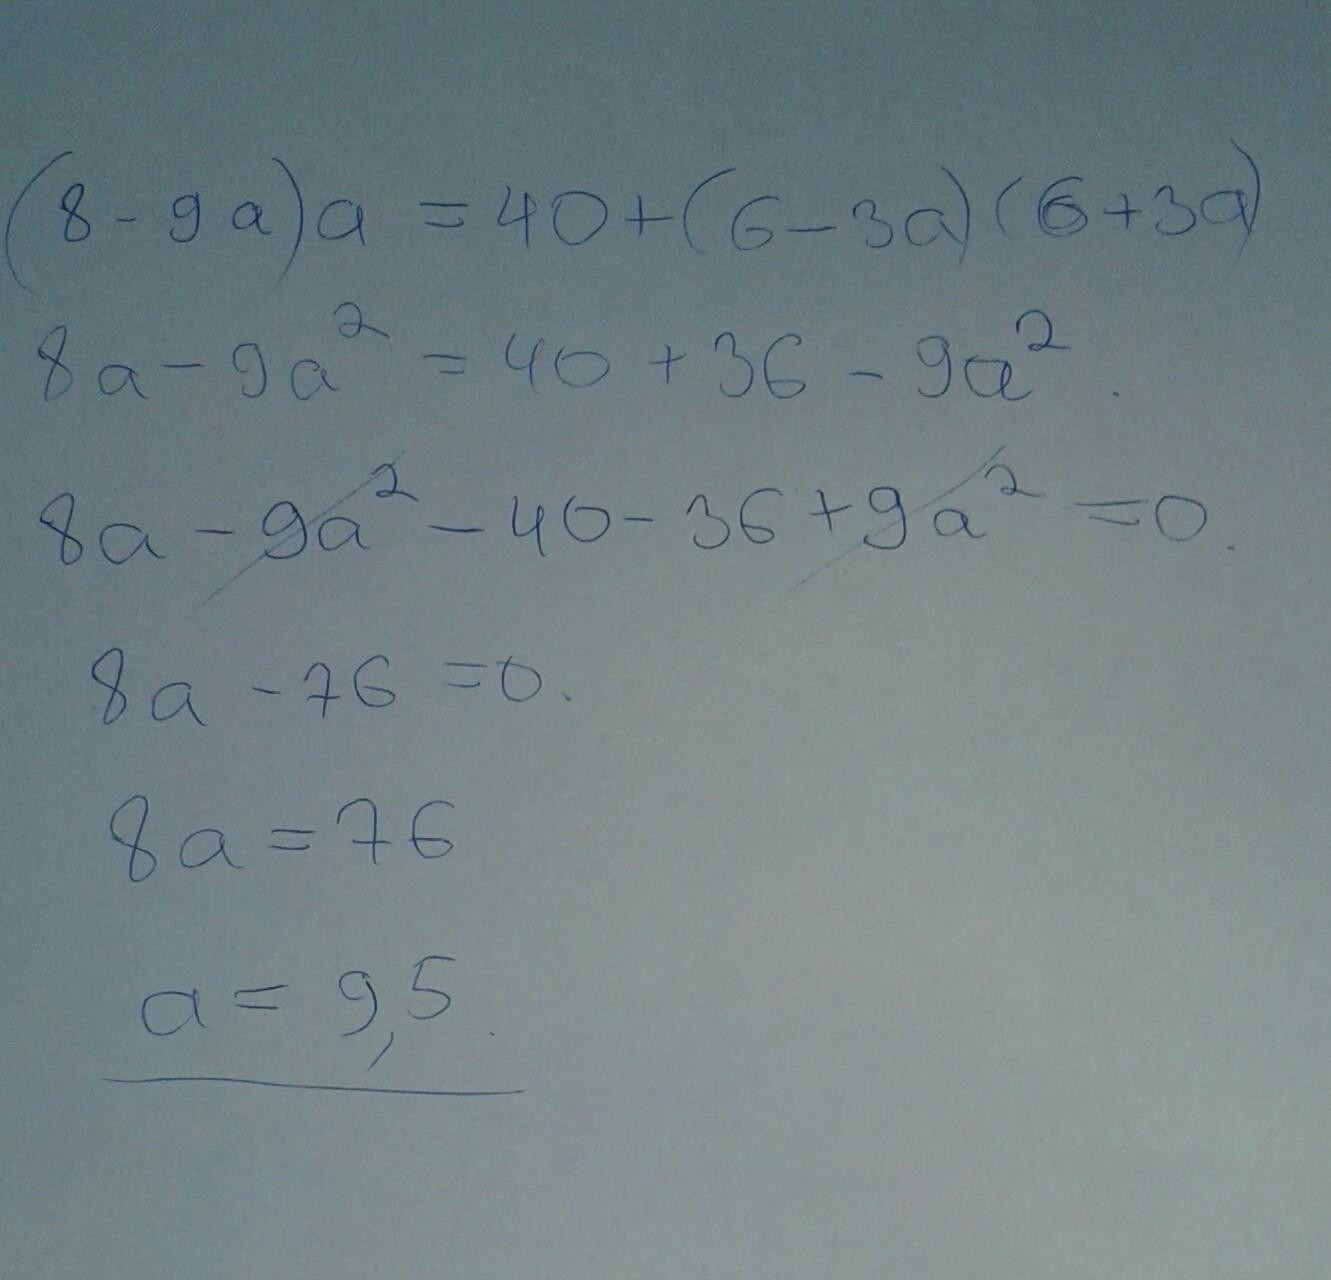 (8-9a)a = 40+(6-3a)(6+3a)
8a-9a² = 40+36-9a².
8a-9a²-40-36+9a²=0.
8a-76=0.
8a=76
a=9,5.